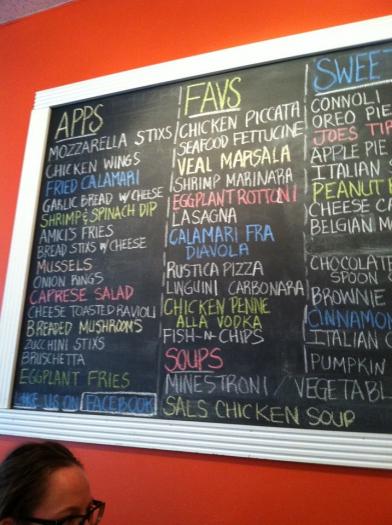 APPS
MOZZARELLA STIXS
CHICKEN WINGS
FRIED CALAMARI
GARLIC BREAD W/CHEESE
SHRIMP & SPINACH DIP
AMICI'S FRIES
BREAD STIXS W/CHEESE
MUSSELS
ONION RINGS
CAPRESE SALAD
CHEESE TOASTED RAVIOLI
BREADED MUSHROOMS
ZUCCHINI STIXS
BRUSCHETTA
EGGPLANT FRIES
LIKE US ON FACEBOOK
FAVS
CHICKEN PICCATA
SEAFOOD FETTUCINE
VEAL MARSALA
SHRIMP MARINARA
EGGPLANT ROTTONI
LASAGNA
CALAMARI FRA
DIAVOLA
RUSTICA PIZZA
LINGUINI CARBONARA
CHICKEN PENNE
ALLA VODKA
FISH-N-CHIPS
SOUPS
MINESTRONI / VEGETABL
SALS CHICKEN SOUP
SWEE
CONNOLI
OREO PIE
JOES TIR
APPLE PIE
ITALIAN
PEANUT
CHEESE CA
BELGIAN
CHOCOLATE
SPOON
BROWNIE
CINNAMON
ITALIAN
PUMPKIN